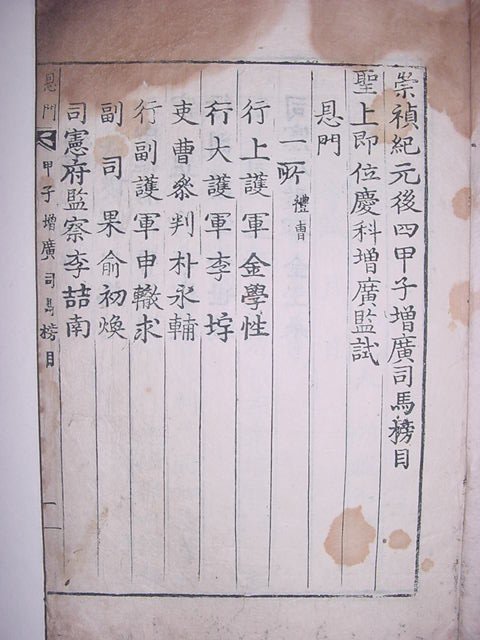 崇禎紀元後四甲子增廣司馬榜目
聖上即位慶科增廣監試
恩門
一所 禮曹
行上護軍金學性
行大護軍李㘾
吏曹參判朴永輔
行副護軍申轍求
副司果俞初煥
司憲府監察李喆南
恩門 甲子增廣司馬榜目 一